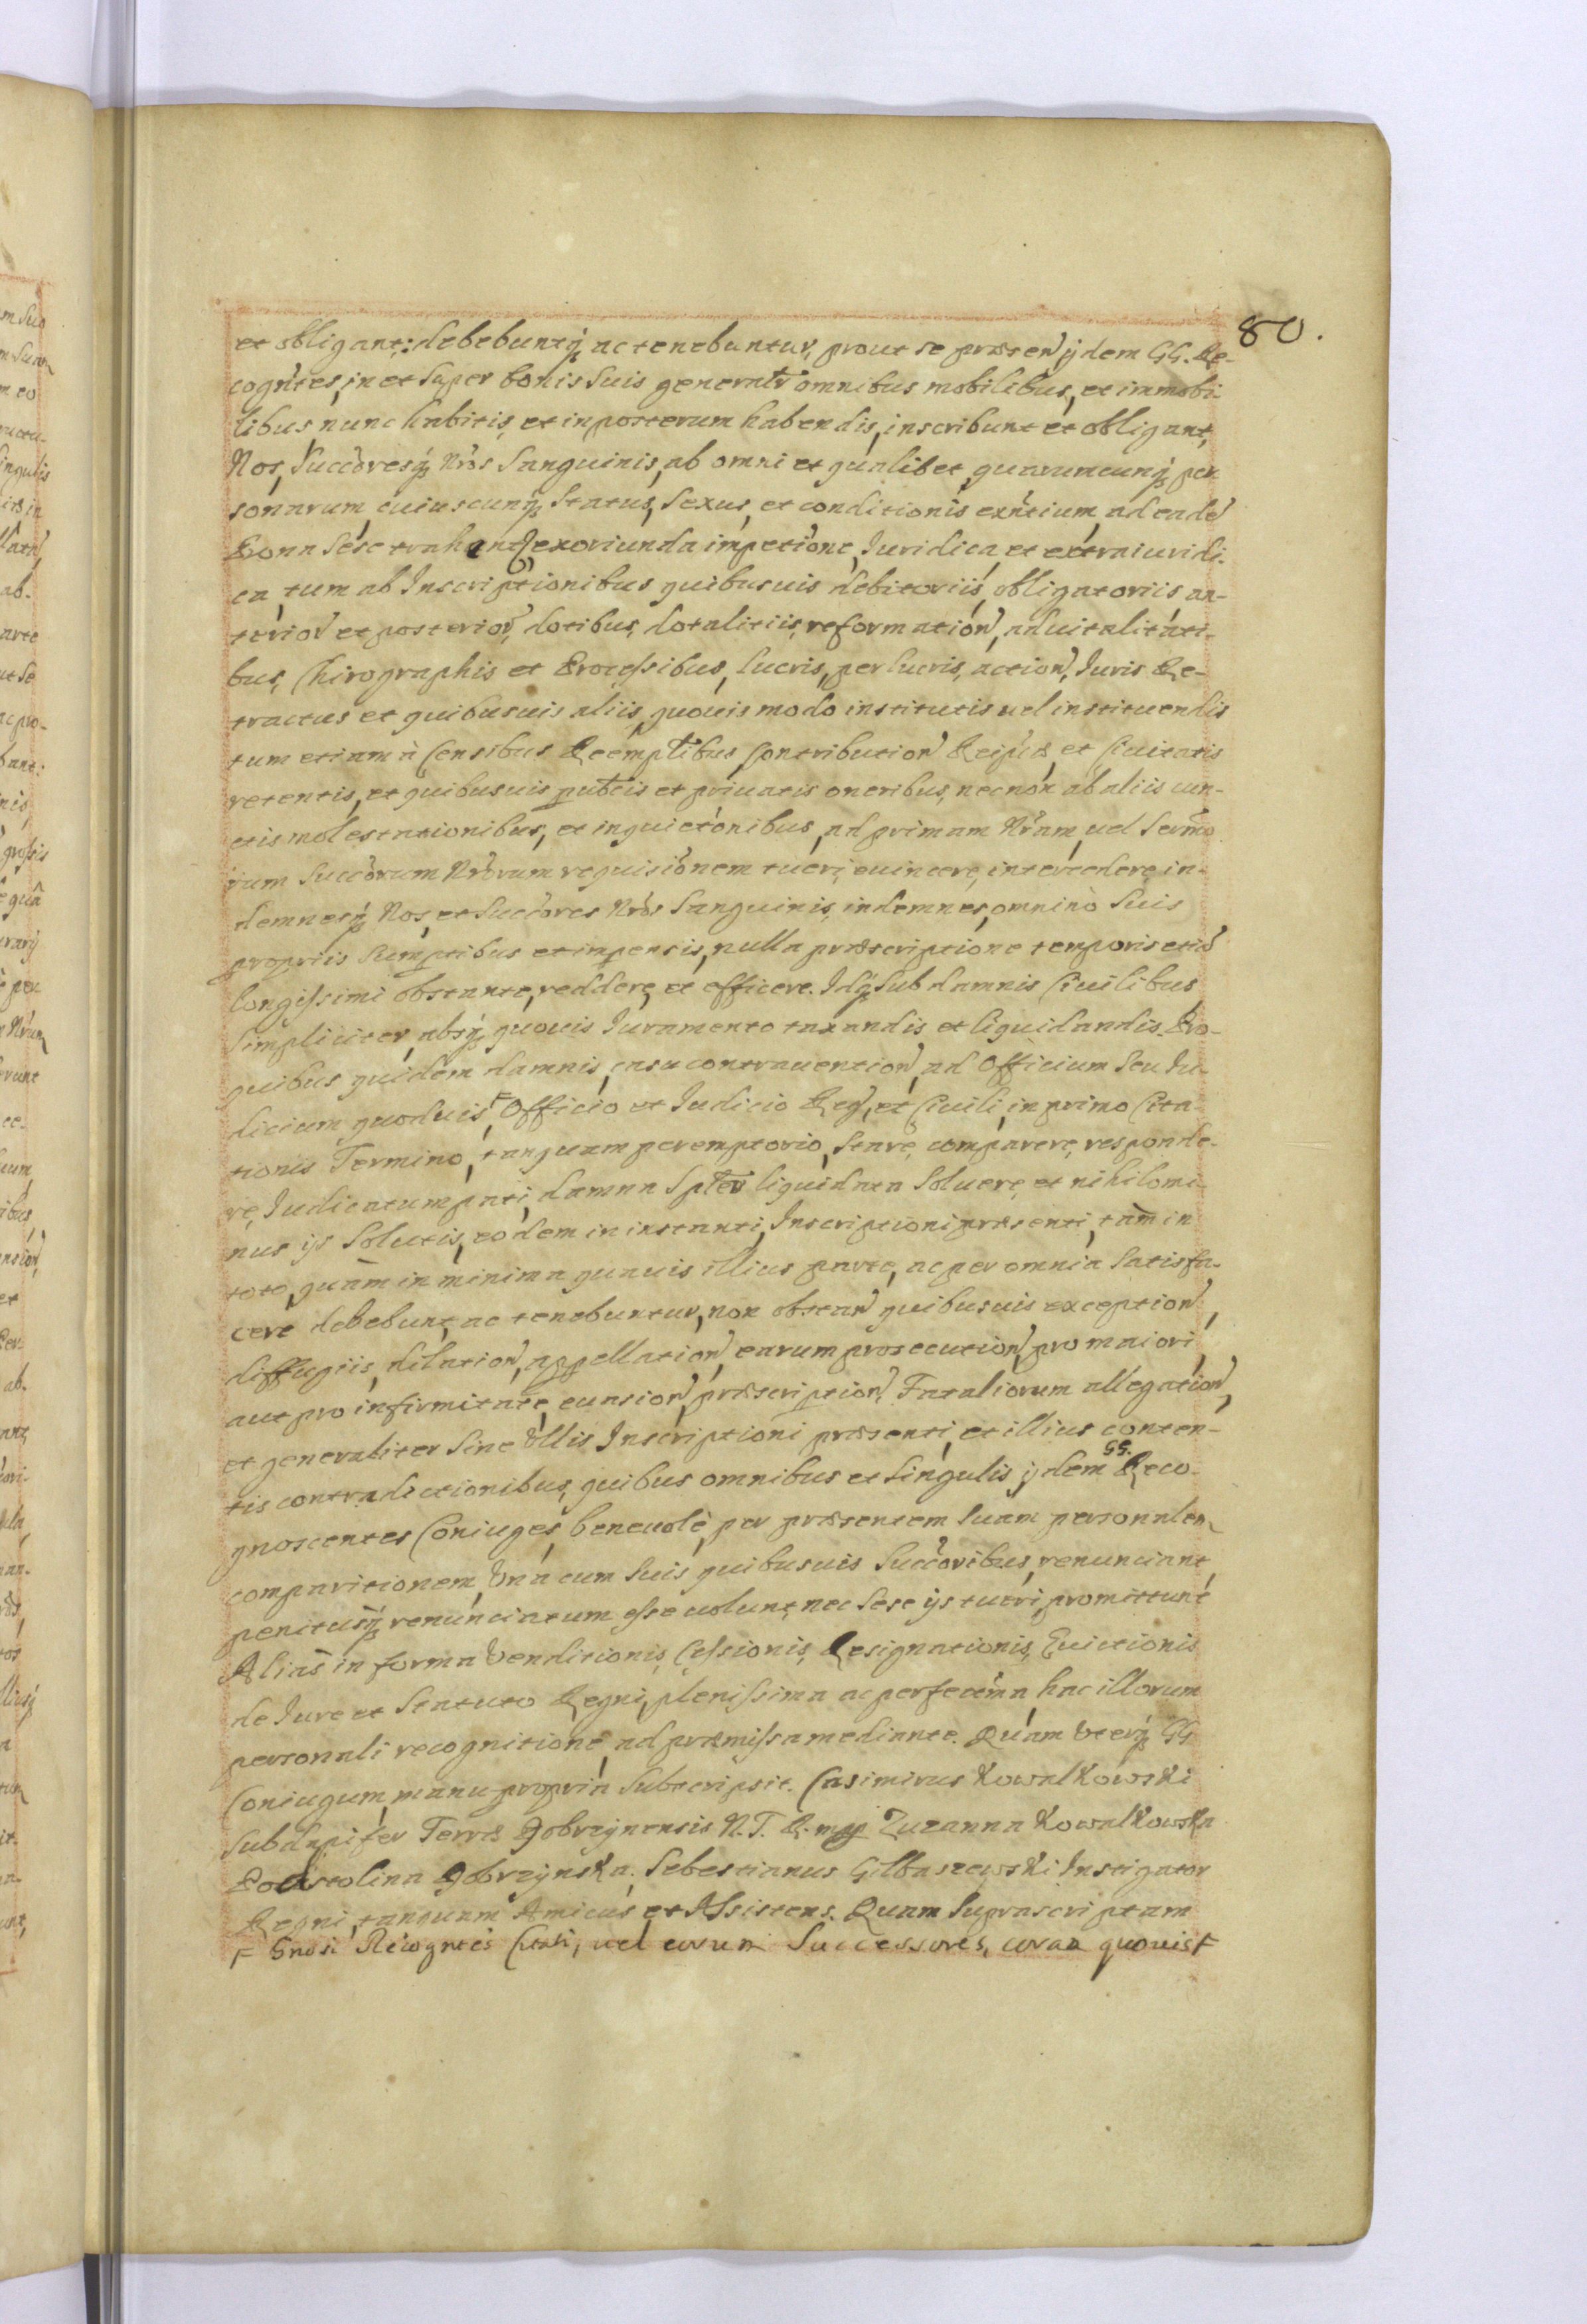 80.
et obligant: debebuntq́ ac tenebuntur, prout se præsen̄ ijdem GG. Re-
cogn̄tes, in et super bonis suis generalr̄ omnibus mobilibus, et immobi-
libus nunc habitis, et in posterum habendis, inscribunt et obligant,
Nos, Succ̄oresq́ Nr̄os Sanguinis, ab omni et qualibet, quaruncunq́ per-
sonarum, cuiuscunq́ Status, Sexus, et conditionis exn̄tium, ad eadē
Bona sese trahentē exoriunda impetīone, Iuridica, et extraiuridi-
ca, tum ab Inscriptionibus quibusuis debitoriis, obligatoriis an-
terior̄ et posterior̄, dotibus, dotalitiis, reformation̄, aduitalitati-
bus, Chirographis et Processibus, lucris, perlucris, action̄, Iuris Re-
tractus et quibusuis aliis, quouis modo institutis uel instituendis
tum etiam à Censibus Reemptl̄ibus, Contribution̄ Reip̄cæ, et Ciuitatis
retentis, et quibusuis publ̄cis et priuatis oneribus, necnon ab aliis cun-
ctis molestationibus, et inquietōnibus, ad primam Nr̄am, uel Serm̄o
rum Succ̄orum Nr̄orum requisiōnem tueri, euincere, intercedere, in-
demnesq́ Nos, et Succ̄ores Nr̄os Sanguinis, indemnes, omninò suis
propriis sumptibus et impensis, nulla præscriptione temporis etiā
longissimi obstante, reddere, et efficere. Idq́ sub damnis Ciuilibus
simpliciter, absq́ quouis Iuramento taxandis et liquidandis. Pro
quibus quidem damnis, casu contrauention̄, ad Officium seu Iu-
dicium quoduis F Officio et Iudicio Reḡ, et Ciuili, in primo Cita-
tionis Termino, tanquam peremptorio, stare, comparere, responde-
re, Iudicatum pati, damna spl̄er liquidata soluere, et nihilomi-
nus ijs solutis, eodem in instanti, Inscriptioni præsenti, tam in
toto, quam in minima quauis illius parte, ac per omnia satisfa-
cere debebunt, ac tenebuntur, non obstan̄ quibusuis exception̄,
diffugiis, dilation̄, appellation̄, earum prosecution̄, pro maiori
aut pro infirmitate, euasion̄, præscription̄, Fataliorum allegation̄,
et generaliter sine Vllis Inscriptioni præsenti, et illius conten-
tis contradictionibus, quibus omnibus et singulis ijdem GG. Reco-
gnoscentes Coniuges, beneuolè, per præsentem suam personalem
comparitionem, Vnà cum suis quibusuis Succ̄oribus, renunciant,
penitusq́ renunciatum esse uolunt, nec sese ijs tueri, promittunt
Alias in forma Venditionis, Cessionis, Resignationis, Euictionis
de Iure et Statuto Regni, plenissima ac perfectm̄a hac illorum
personali recognitione, ad præmissa mediante. Quam Vterq́ GG
Coniugum, manu propria subscripsit. Casimirus Kowalkowski
Subdapifer Terræ Dobrzynensis N. T. R. mp Zuzanna Kowalkowska
Podstolina Dobrzynska. Sebestianus Gilbaszewski Instigator
Regni, tanquam Amicus et Assistens. Quam suprascriptam
F Gnosi Recogn̄tes Citati, uel eorum Successores, coram quouis F